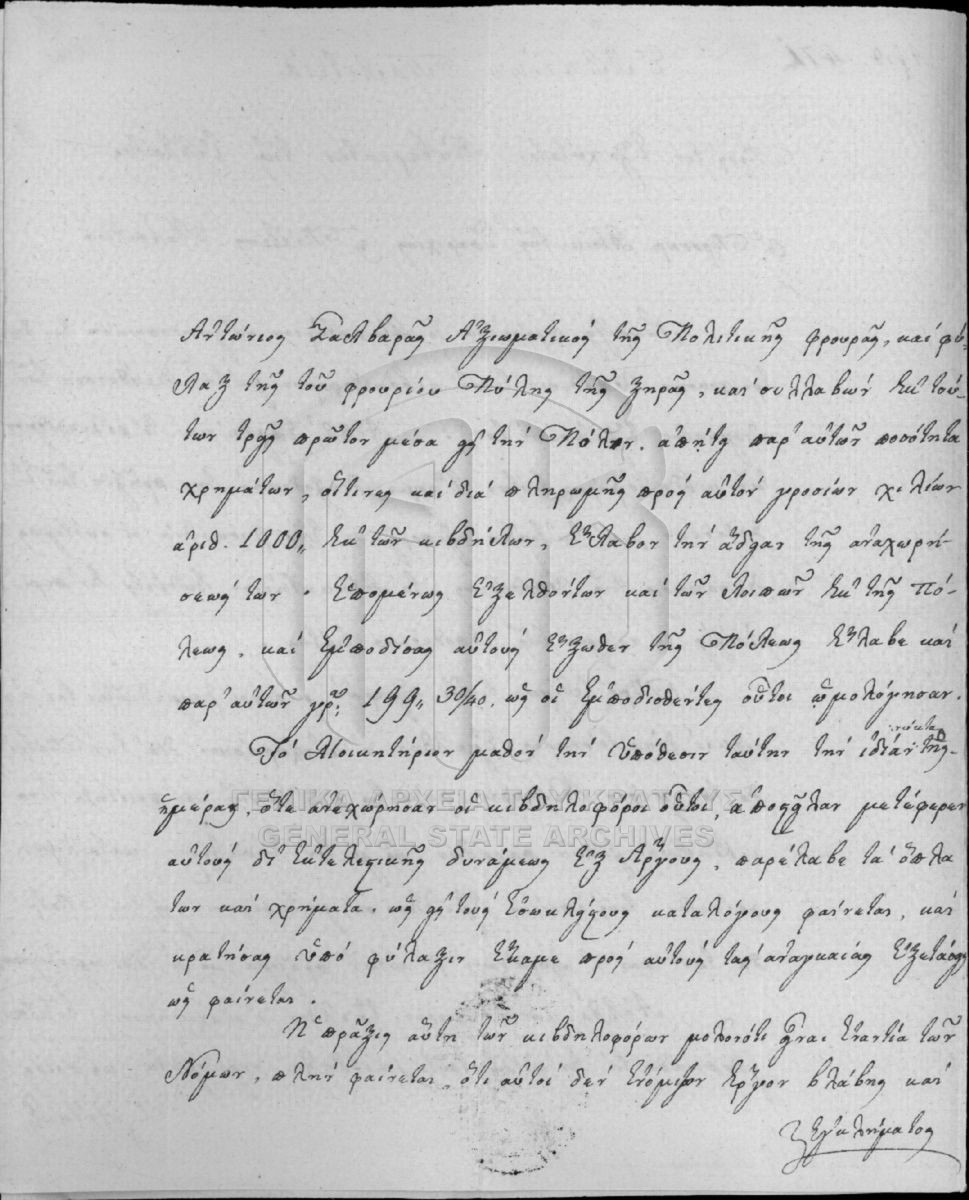 Ἀντώνιος Σακλβαρᾶς Ἀξιωματικός τῆς Πολιτικῆς φρουρᾶς, καί φύ-
λαξ τῆς τοῦ φρουρίου Πύλης τῆς ξηρᾶς, καί συλλαβών ἐκ τού-
των τρεῖς πρῶτον μέσα εἰς τήν Πόλιν. ἀπῄτει παρ' αὐτῶν ποσότητα
χρημάτων, οἵτινες καί διά πληρωμῆς πρός αὐτόν γροσίων χιλίων
ἀριθ. 1000,, ἐκ τῶν κιβδήλων, ἔλαβον τήν ἄδειαν τῆς ἀναχωρή-
σεώς των. ἑπομένως ἐξελθόντων καί τῶν λοιπῶν ἐκ τῆς Πό-
λεως, καί ἐμποδίσας αὐτούς ἔξωθεν τῆς Πόλεως ἔλαβε καί
παρ' αὐτῶν γρ: 199,, 30/40. ὡς οἱ ἐμποδισθέντες οὗτοι ὡμολόγησαν.
Τό Διοικητήριον μαθόν τήν ὑπόθεσιν ταύτην τήν ἰδίαν νύκτα τῆς
ἡμέρας, ὅτε ἀνεχώρησαν οἱ κιβδηλοφόροι οὗτοι, ἀποστεῖλαν μετέφερεν
αὐτούς δι' ἐκτελεστικῆς δυνάμεως ἐξ Ἄργους, παρέλαβε τά ὅπλα
των καί χρήματα. ὡς εἰς τούς ἐσωκλείστους καταλόγους φαίνεται, καί
κρατήσας ὑπό φύλαξιν ἔκαμε πρός αὐτούς τάς ἀναγκαίας ἐξετάσεις
ὡς φαίνεται.
Ἡ πρᾶξις αὕτη τῶν κιβδηλοφόρων μολονότι εἶναι ἐναντία τῶν
Νόμων, πλήν φαίνεται, ὅτι αὐτοί δέν ἐνόμιζον ἔργον βλάβης καί
ἐγκλήματος
ΓΕΝΙΚΑ ΑΡΧΕΙΑ ΤΟΥ ΚΡΑΤΟΥΣ
GENERAL STATE ARCHIVES